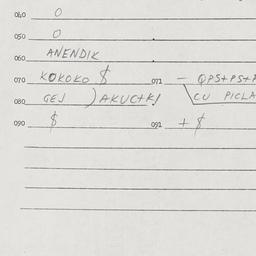 040 O
050 O
060 ANENDIK
070 KOKOKO $ 071 - QPS+PS+
080 GEJ ) AKUCTKJ CU PICLA
090 $ 091 + $